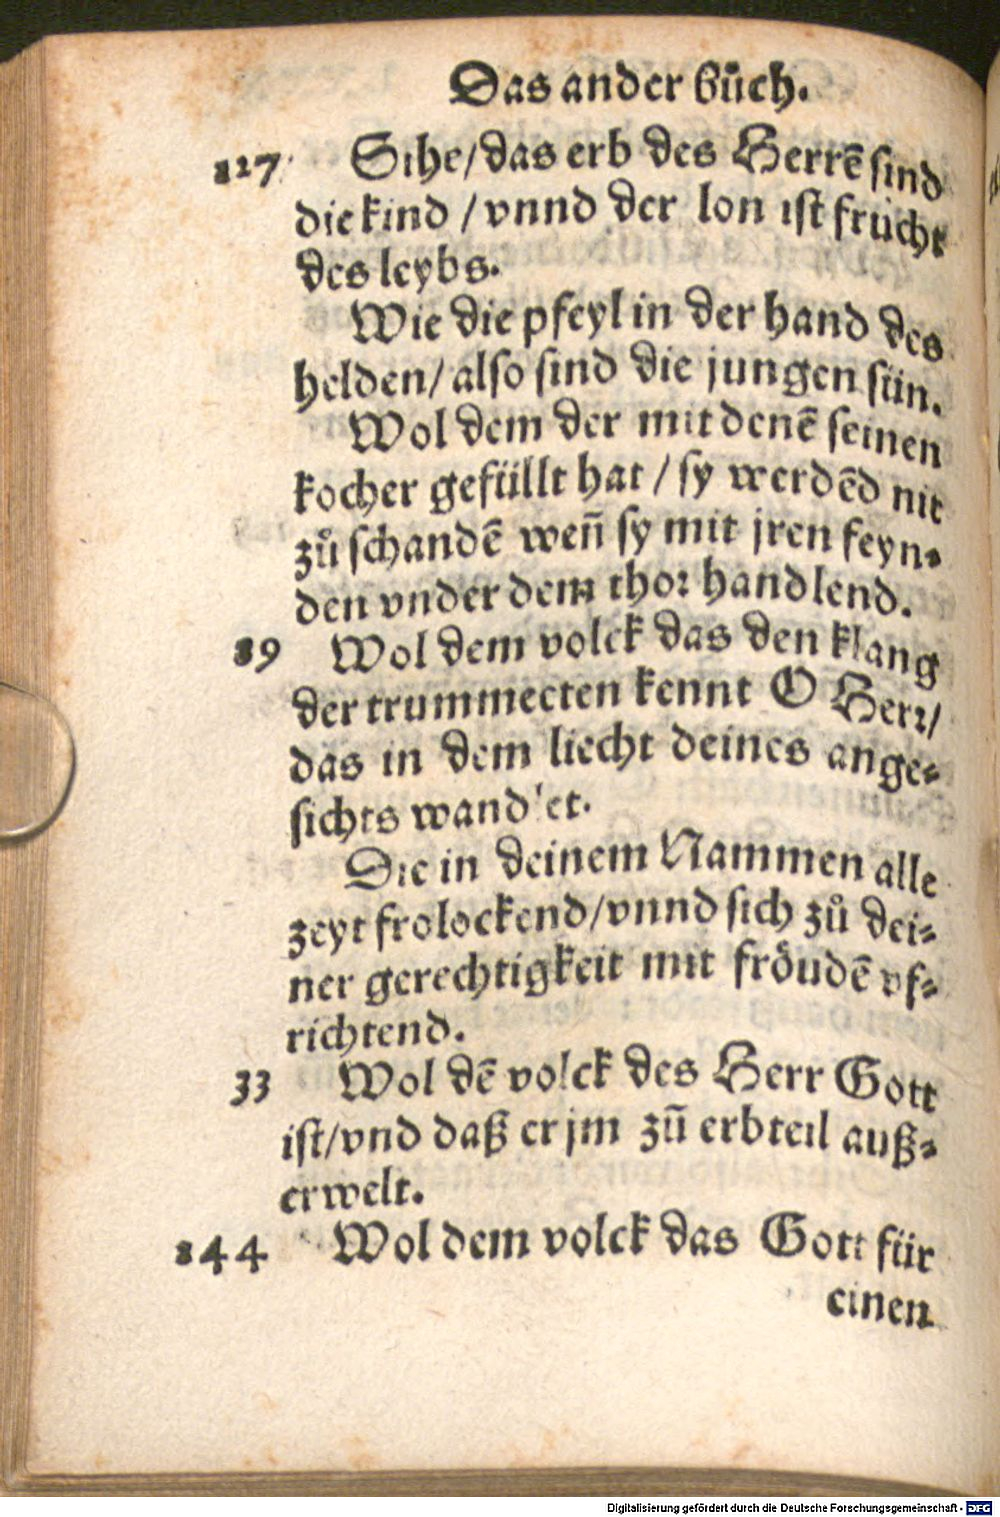 Das ander bůch.
127 Sihe/das erb des Herrē sind
die kind /vnnd der lon ist frücht
des leybs.
Wie die pfeyl in der hand des
helden/also sind die jungen sün.
Wol dem der mit denē seinen
kocher gefüllt hat /sy werdēd nit
zů schandē weñ sy mit jren feyn⸗
den vnder dem thor handlend.
89 Wol dem volck das den klang
der trummecten kennt O Herr/
das in dem liecht deines ange⸗
sichts wandlet.
Die in deinem Nammen alle
zeyt frolockend/vnnd sich zů dei⸗
ner gerechtigkeit mit fröudē vf⸗
richtend.
33 Wol dē volck des Herr Gott
ist/vnd daß er jm zů erbteil auß⸗
erwelt.
144 Wol dem volck das Gott für
einen
Digitalisierung gefördert durch die Deutsche Forschungsgemeinschaft - DFG